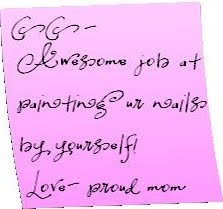 GG-
Awesome job at
painting ur nails
by yourself!
Love- proud mom